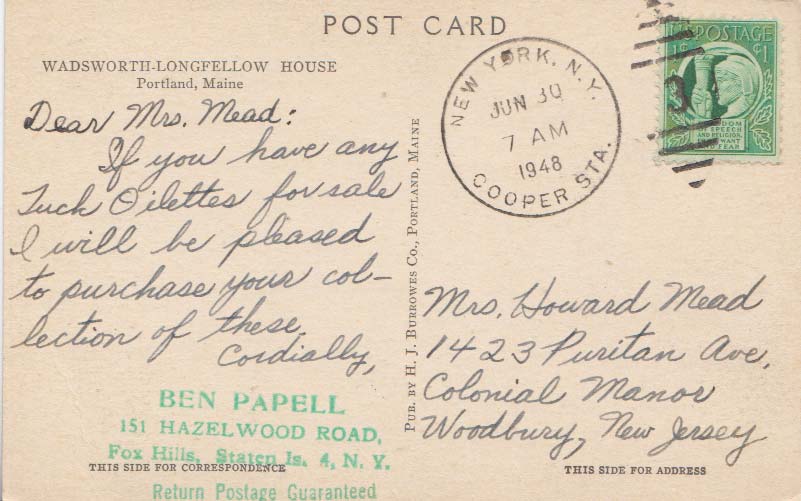 POST CARD
WADSWORTH-LONGFELLOW HOUSE
Portland, Maine
Dear Mrs. Mead:
If you have any
Tuck Oilettes for sale
I will be pleased
to purchase your col-
lection of these.
Cordially,
BEN PAPELL
151 HAZELWOOD ROAD,
Fox Hills, Staten Is. 4, N. Y.
THIS SIDE FOR CORRESPONDENCE
Return Postage Guaranteed
PUB. BY H. J. BURROWES CO., PORTLAND, MAINE
NEW YORK, N.Y.
JUN 30
7 AM
1948
COOPER STA.
POSTAGE
1¢ ¢1
OF SPEECH
AND RELIGION,
WANT
AND FEAR
Mrs. Howard Mead
1423 Puritan Ave.
Colonial Manor
Woodbury, New Jersey
THIS SIDE FOR ADDRESS